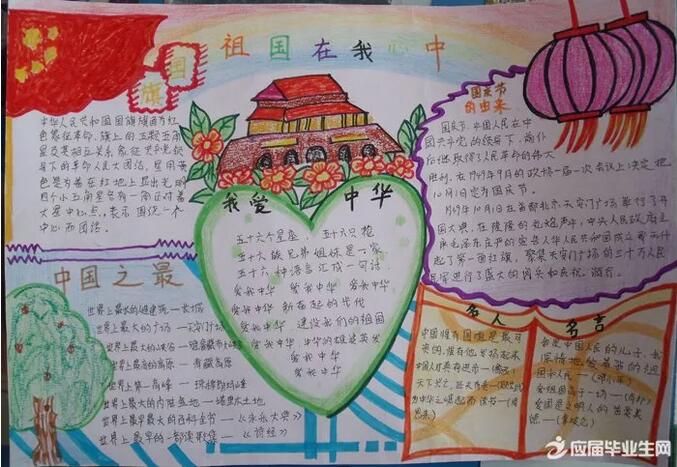 祖国在我心中
国旗
中华人民共和国国旗旗面为红
色象征革命。旗上的五颗五角
星及其相互关系象征共产党领
导下的革命人民大团结。星用黄
色是为着在红地上显出光明
四个小五角星各有一角正对着
大星中心点，表示围绕一个
中心而团结。
国庆节
的由来
国庆节，中国人民在中
国共产党的领导下，前仆
后继取得了人民革命的伟大
胜利。在1949年9月的政协一届一次会议上决定把
10月1日定为国庆节。
1949年10月1日在首都北京天安门广场举行了开
国大典，在隆隆的礼炮声中，中央人民政府主
席毛泽东庄严的宣告中华人民共和国成立那天升
起了第一面红旗，聚集天安门广场的三十万人民
进行了盛大的阅兵和庆祝游行。
我爱中华
五十六个星座，五十六只花
五十六族兄弟姐妹是一家
五十六种语言汇成一句话，
爱我中华 爱我中华 爱我中华
爱我中华 新奋起的步伐
爱我中华 建设我们的祖国
爱我中华 中华的雄姿英发
爱我中华
爱我中华
中国之最
世界上最长的城建筑—长城
世界上最大的广场—天安门广场
世界上最大的峡谷—雅鲁藏布江大峡谷
世界上最高的高原—青藏高原
世界上第一高峰—珠穆朗玛峰
世界上最大的内陆盆地—塔里木盆地
世界上最早最大的百科全书—《永乐大典》
世界上最早的一部诗歌集—《诗经》
名人
名言
天下兴亡，匹夫有责
为中华之崛起而读书—(周
恩来)
我是中国人民的儿子，我
深情地爱着我的祖
国和人民—(邓小平)
应届毕业生网